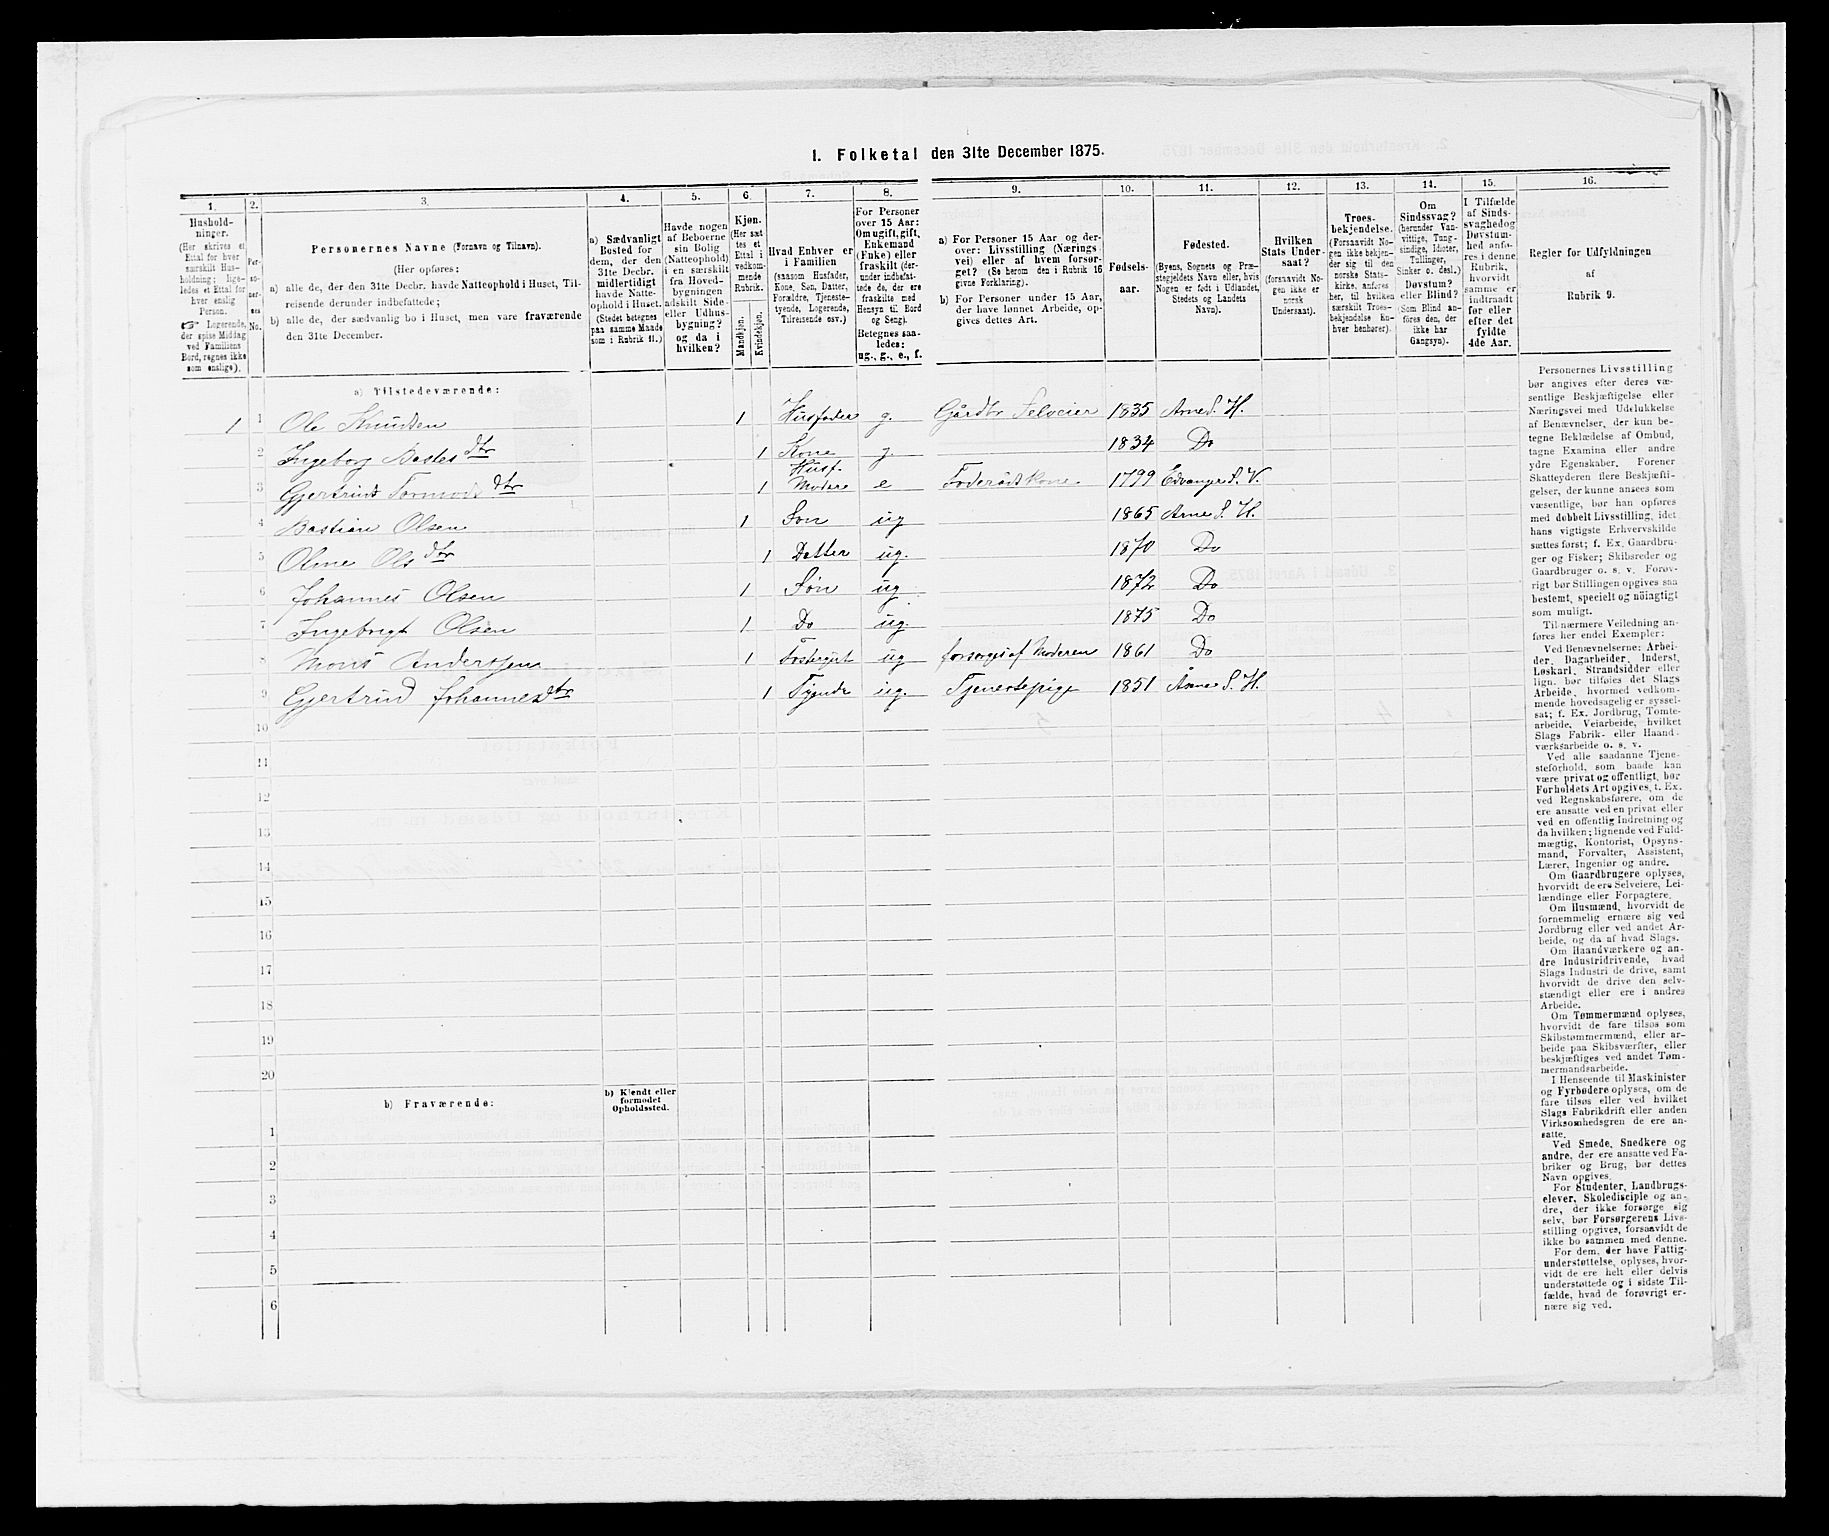 I. Folketal den 31te December 1875.
1. 2. 3. 4. 5. 6. 7. 8. 9. 10. 11. 12. 13. 14. 15. 16.
Hushold-
ninger.
(Her skrives et
Ettal for hver
særskilt Hus-
holdning; lige-
ledes et Ettal for
hver enslig
Person.
☞ Logerende,
der spise Middag
ved Familiens
Bord, regnes ikke
som enslige).
Per-
so-
ner-
nes
No.
Personernes Navne (Fornavn og Tilnavn).
(Her opføres:
a) alle de, der den 31te Decbr. havde Natteophold i Huset, Til-
reisende derunder indbefattede;
b) alle de, der sædvanlig bo i Huset, men vare fraværende
den 31te December.
a) Sædvanligt
Bosted for
dem, der den
31te Decbr.
midlertidigt
havde Natte-
ophold i Huset.
(Stedet betegnes
paa samme Maade
som i Rubrik 11.)
Havde nogen
af Beboerne
sin Bolig
(Natteophold)
i en særskilt
fra Hoved-
bygningen
adskilt Side-
eller Udhus-
bygning?
og da i
hvilken?
Kjøn.
(Her sæt
tes et
Ettal i
vedkom-
mende
Rubrik.
Mandkjøn.
Kvindekjøn.
Hvad Enhver er
i Familien
(saasom Husfader,
Kone, Søn, Datter,
Forældre, Tjeneste-
tyende, Logerende,
Tilreisende osv.)
For Personer
over 15 Aar:
Om ugift, gift,
Enkemand
(Enke) eller
fraskilt (der-
under indbefat-
tede de, der ere
fraskilte med
Hensyn til Bord
og Seng).
Betegnes saa-
ledes:
ug., g., e., f.
a) For Personer 15 Aar og der-
over: Livsstilling (Nærings
vei) eller af hvem forsør-
get? (Se herom den i Rubrik 16
givne Forklaring).
b) For Personer under 15 Aar,
der have lønnet Arbeide, op-
gives dettes Art.
Fødsels-
aar.
Fødested.
(Byens, Sognets og Præ-
stegjeldets Navn eller, hvis
Nogen er født i Udlandet,
Stedets og Landets
Navn).
Hvilken
Stats Under-
saat?
(forsaavidt No-
gen ikke er
norsk
Undersaat).
Troes-
bekjendelse.
(Forsaavidt No-
gen ikke bekjen-
der sig til den
norske Stats-
kirke, anføres
her, til hvilken
særskilt Troes-
bekjendelse En-
hver henhører).
Om
Sindssvag?
(herunder Van-
vittige, Tung-
sindige, Idioter,
Tullinger,
Sinker o. desl.)
Døvstum?
eller Blind?
(Som Blind an-
føres den, der
ikke har
Gangsyn).
I Tilfælde
af Sinds-
svaghed og
Døvstum-
hed anfø-
res i denne
Rubrik,
hvorvidt
samme er
indtraadt
før eller
efter det
fyldte
4de Aar.
Regler for Udfyldningen
af
Rubrik 9.
a) Tilstedeværende:
1 1 Ole Knudsen 1 Husfader g. Gårdbr Selveier 1835 Arne S. H.
2 Ingeborg Bastesdtr 1 Kone g. 1834 Do
3 Gjertrud Tormodsdtr 1 Husf. Moder e Foderådskone 1799 Edvanger S. V.
4 Bastian Olsen 1 Son ug 1865 Arne S. H.
5 Oline Olsdtr 1 Datter ug. 1870 Do
6 Johannes Olsen 1 Søn ug 1872 Do
7 Ingebrigt Olsen 1 Do ug. 1875 Do
8 Mons Anderssen 1 ug forsørges af Moderen 1861 Do
9 Gjertrud Johannesdtr 1 Tyende ug. Tjenestepige 1851 Arne S. H.
10
11
12
13
14
15
16
17
18
19
20
b) Fraværende:
b) Kjendt eller
formodet
Opholdssted.
1
2
3
4
5
6
Personernes Livsstilling
bør angives efter deres væ-
sentlige Beskjæftigelse eller
Næringsvei med Udelukkelse
af Benævnelser, der kun be-
tegne Beklædelse af Ombud,
tagne Examina eller andre
ydre Egenskaber. Forener
Skatteyderen flere Beskjæfti-
gelser, der kunne ansees som
væsentlige, bør han opføres
med dobbelt Livsstilling, idet
hans vigtigste Erhvervskilde
sættes først; f. Ex. Gaardbru-
ger og Fisker; Skibsreder og
Gaardbruger o. s. v. Forøv-
rigt bør Stillingen opgives saa
bestemt, specielt og nøiagtigt
som muligt.
Til nærmere Veiledning an-
føres her endel Exempler:
Ved Benævnelserne: Arbei-
der, Dagarbeider, Inderst,
Løskarl, Strandsidder eller
lign. bør tilføies det Slags
Arbeide, hvormed vedkom-
mende hovedsagelig er syssel-
sat; f. Ex. Jordbrug, Tomte-
arbeide, Veiarbeide, hvilket
Slags Fabrik- eller Haand-
værksarbeide o. s. v.
Ved alle saadanne Tjene-
steforhold, som baade kan
være privat og offentligt, bør
Forholdets Art opgives, t. Ex.
ved Regnskabsførere, om de
ere ansatte ved en privat eller
ved en offentlig Indretning og
da hvilken; lignende ved Fuld-
mægtig, Kontorist, Opsyns-
mand, Forvalter, Assistent,
Lærer, Ingeniør og andre.
Om Gaardbrugere oplyses,
hvorvidt de ere Selveiere, Lei-
lændinge eller Forpagtere.
Om Husmænd, hvorvidt de
fornemmelig ernære sig ved
Jordbrug eller ved andet Ar-
beide, og da af hvad Slags.
Om Haandværkere og an-
dre Industridrivende, hvad
Slags Industri de drive, samt
hvorvidt de drive den selv-
stændigt eller ere i andres
Arbeide.
Om Tømmermænd oplyses,
hvorvidt de fare tilsøs som
Skibstømmermænd, eller ar-
beide paa Skibsværfter, eller
beskjæftiges ved andet Tøm-
mermandsarbeide.
I Henseende til Maskinister
og Fyrbødere oplyses, om de
fare tilsøs eller ved hvilket
Slags Fabrikdrift eller anden
Virksomhedsgren de ere an-
satte.
Ved Smede, Snedkere og
andre, der ere ansatte ved Fa-
briker og Brug, bør dettes
Navn opgives.
For Studenter, Landbrugs-
elever, Skoledisciple og an-
dre, der ikke forsørge sig
selv, bør Forsørgerens Livs-
stilling opgives, forsaavidt de
ikke bo sammen med denne.
For dem, der have Fattig-
understøttelse, oplyses, hvor-
vidt de ere helt eller delvis
understøttede og i sidste Til-
fælde, hvad de forøvrigt er-
nære sig ved.